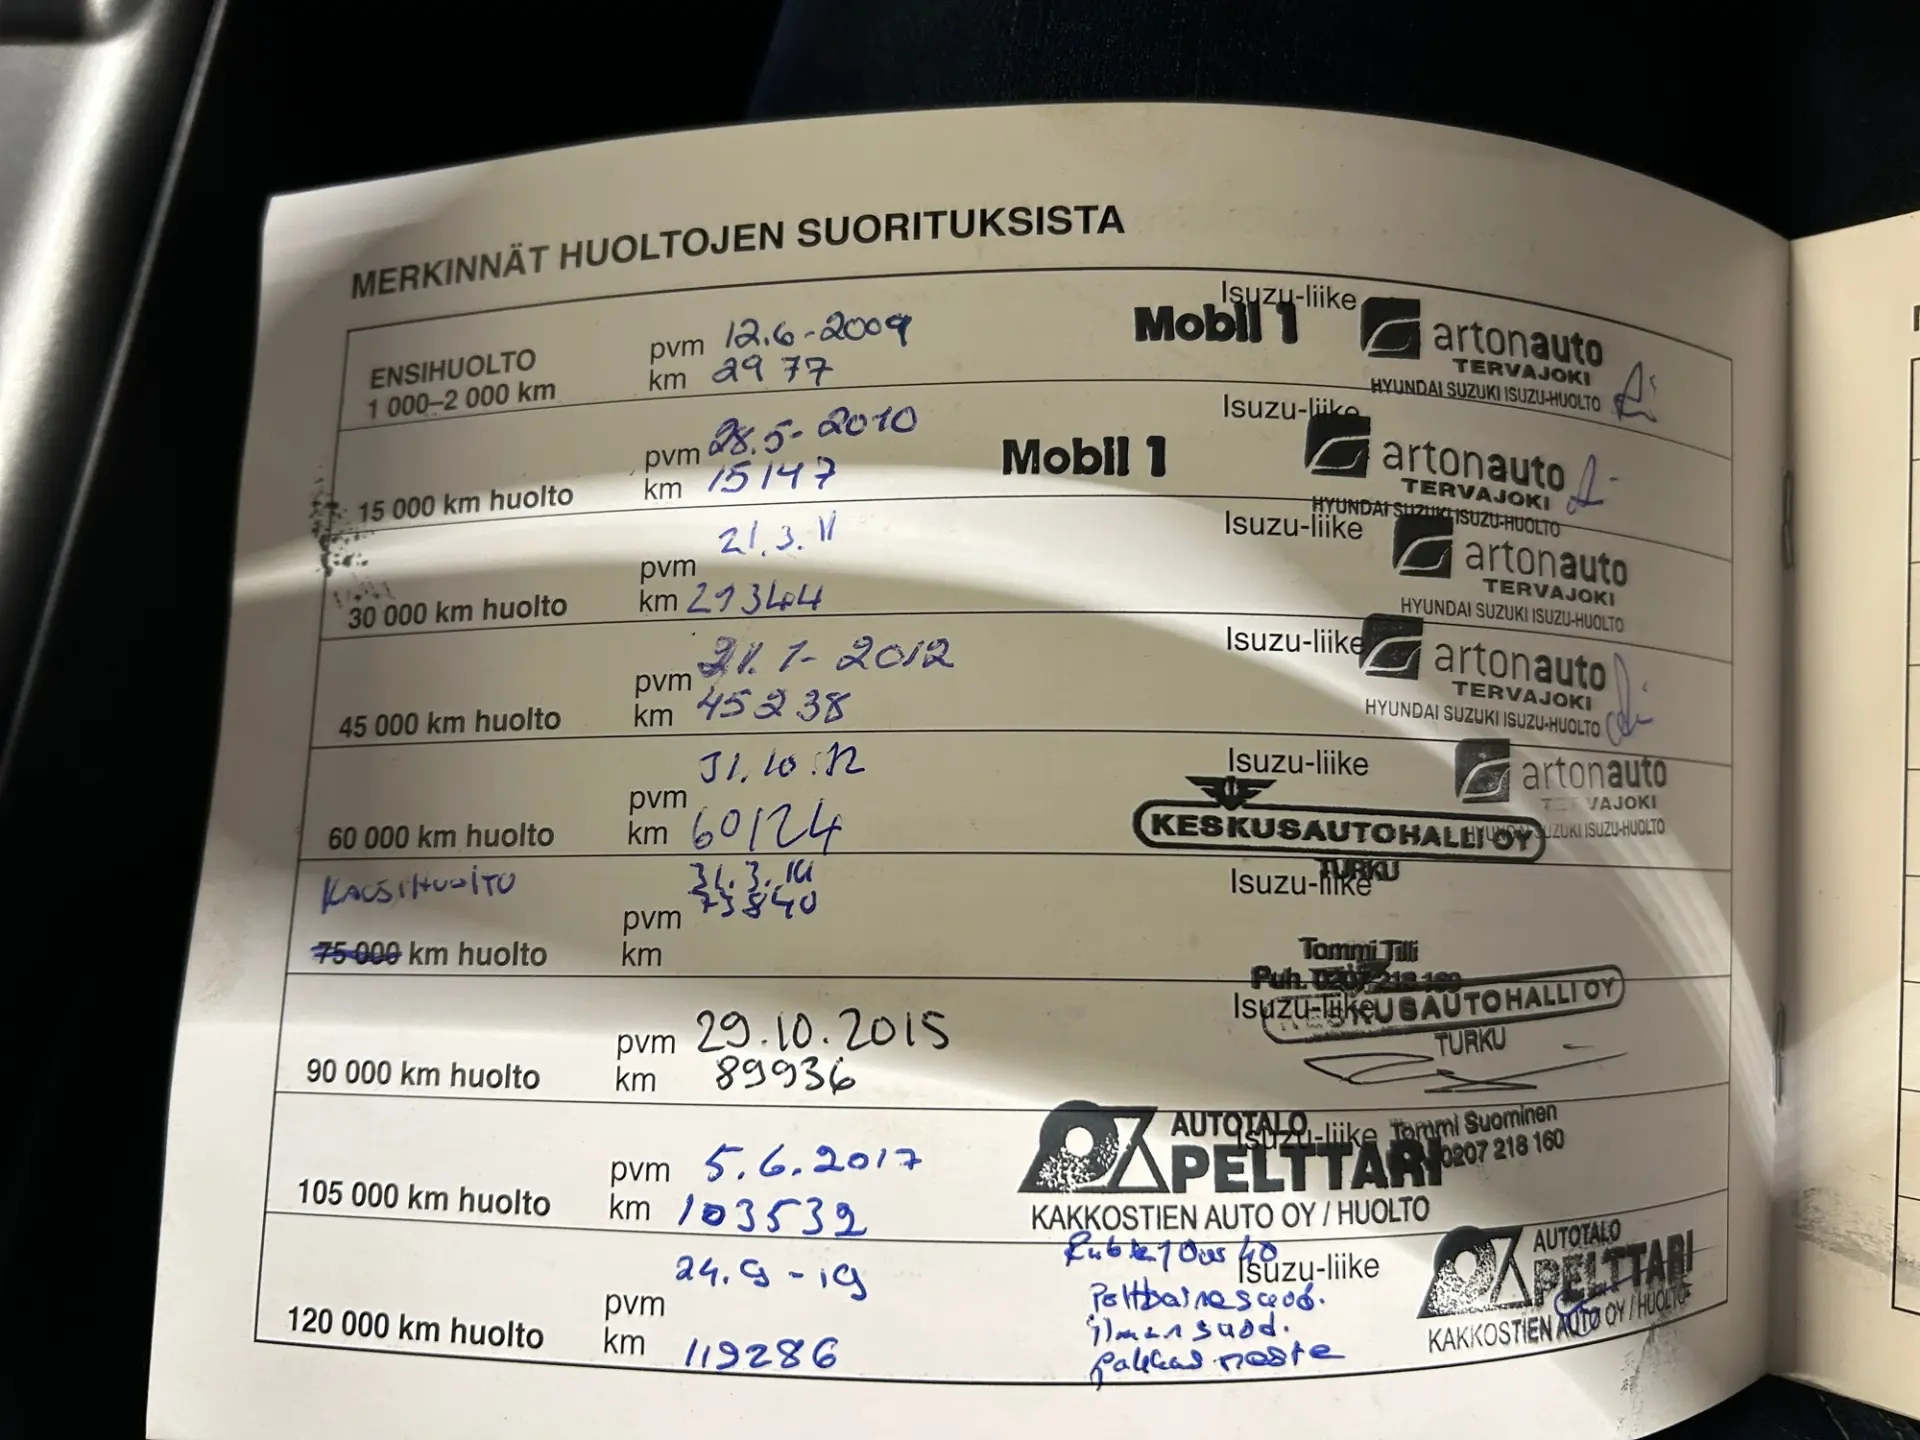 MERKINNÄT HUOLTOJEN SUORITUKSISTA
ENSIHUOLTO
1 000–2 000 km
pvm 12.6-2009
km 2977
Isuzu-liike
Mobil 1
artonauto
TERVAJOKI
HYUNDAI SUZUKI ISUZU-HUOLTO
15 000 km huolto
pvm 28.5-2010
km 15147
Isuzu-liike
Mobil 1
artonauto
TERVAJOKI
HYUNDAI SUZUKI ISUZU-HUOLTO
30 000 km huolto
pvm 21.3.11
km 29344
Isuzu-liike
artonauto
TERVAJOKI
HYUNDAI SUZUKI ISUZU-HUOLTO
45 000 km huolto
pvm 21.1-2012
km 45238
Isuzu-liike
artonauto
TERVAJOKI
HYUNDAI SUZUKI ISUZU-HUOLTO
60 000 km huolto
pvm 31.10.12
km 60124
Isuzu-liike
artonauto
TERVAJOKI
HYUNDAI SUZUKI ISUZU-HUOLTO
KESKUSAUTOHALLI OY
TURKU
75 000 km huolto
pvm 31.3.14
73840
km
Isuzu-liike
Tommi Tilli
Puh. 0207 218 160
90 000 km huolto
pvm 29.10.2015
km 89936
Isuzu-liike
KESKUSAUTOHALLI OY
TURKU
Tommi Suominen
0207 218 160
105 000 km huolto
pvm 5.6.2017
km 103532
Isuzu-liike
AUTOTALO
PELTTARI
KAKKOSTIEN AUTO OY / HUOLTO
120 000 km huolto
pvm 24.9-19
km 119286
Isuzu-liike
40
ilmansuod.
pakkasneste
AUTOTALO
PELTTARI
KAKKOSTIEN AUTO OY / HUOLTO